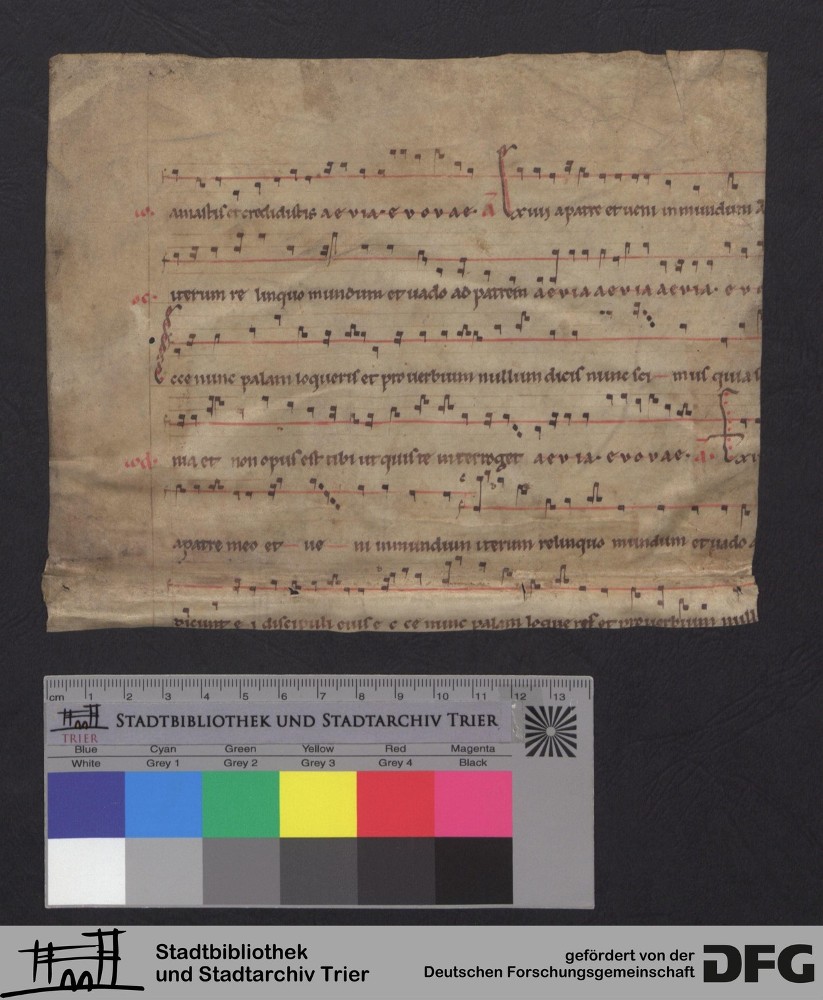 amastis et credidistis a e v i a · e v o v a e · A̅ Exivi a patre et veni in mundum
iterum re linquo mundum et vado ad patrem a e v i a a e v i a a e v i a · e v o
Ecce nunc palam loqueris et proverbium nullum dicis nunc sci mus quia
nia et non opus est tibi ut quis te interroget a e v i a · e v o v a e · A̅ Exi
a patre meo et ve ni in mundum iterum relinquo mundum et vado
Dicunt e i discipuli eius e c ce nunc palam loque ris et proverbium null
cm 1 2 3 4 5 6 7 8 9 10 11 12 13
TRIER
STADTBIBLIOTHEK UND STADTARCHIV TRIER
Blue Cyan Green Yellow Red Magenta
White Grey 1 Grey 2 Grey 3 Grey 4 Black
Stadtbibliothek
und Stadtarchiv Trier
gefördert von der
Deutschen Forschungsgemeinschaft
DFG